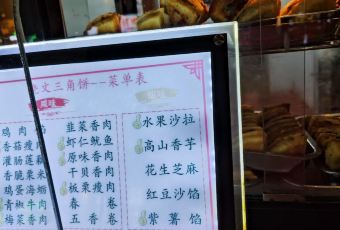 文三角饼--菜单表
风味
鸡肉馅
香菇瘦肉
灌肠莲藕
香脆粟米
鸡蛋海蛎
青椒牛肉
梅菜香肉
韭菜香肉
虾仁鱿鱼
原味香肉
干贝香肉
板栗瘦肉
春卷
五香卷
水果沙拉
高山香芋
花生芝麻
红豆沙馅
紫薯馅